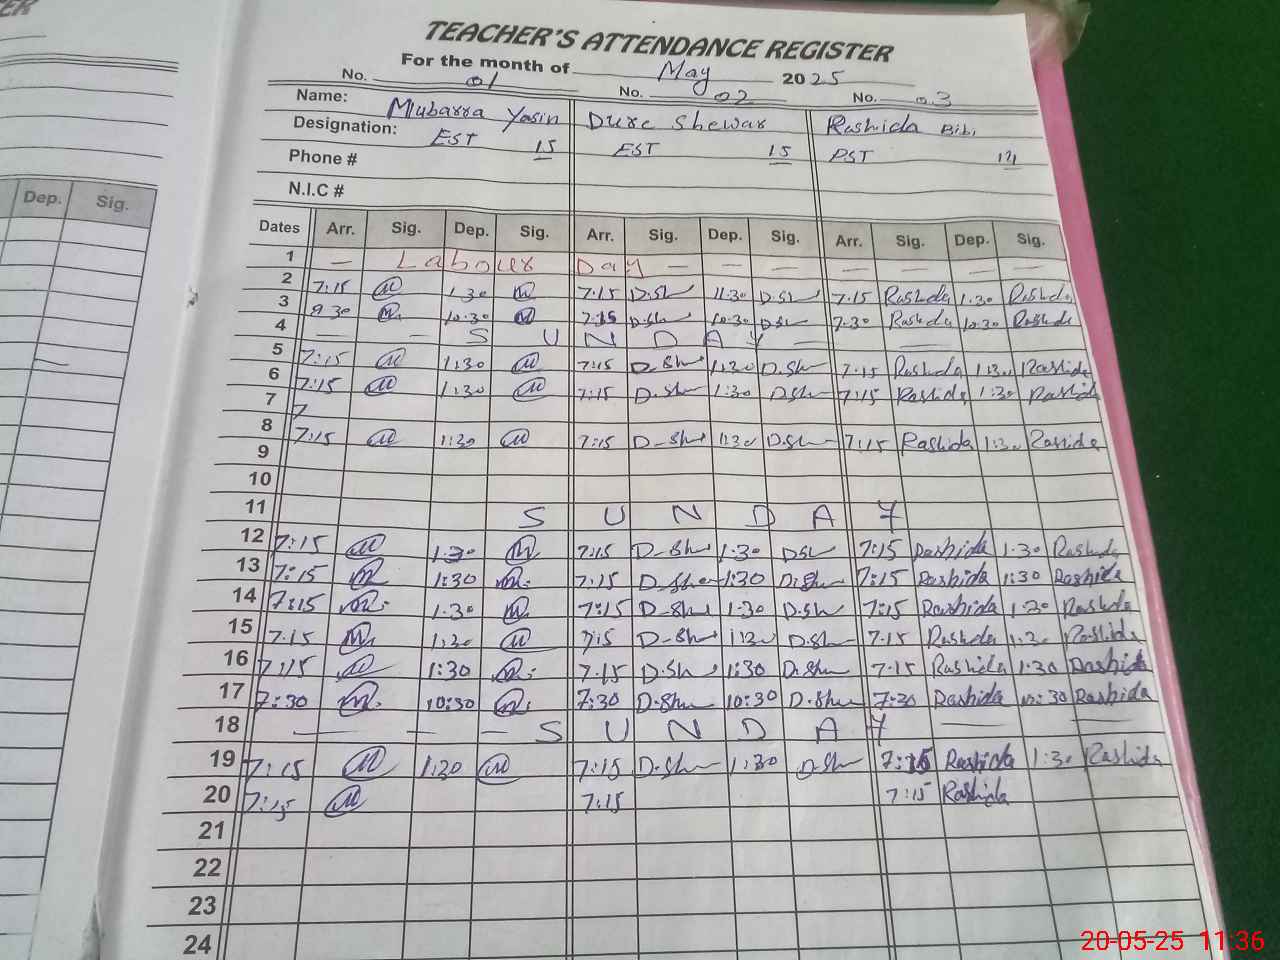 ER
TEACHER'S ATTENDANCE REGISTER
For the month of May 2025
No. 01 No. 02 No. 03
Name: Mubarra Yasin Dure Shewar Rashida Bibi
Designation: EST 15 EST 15 PST
Phone #
N.I.C #
Dep. Sig.
Dates Arr. Sig. Dep. Sig. Arr. Sig. Dep. Sig. Arr. Sig. Dep. Sig.
1 — Labour Day — — — — — —
2 7:15 1:30 7:15 D.Sh 11:30 D.Sh 7:15 Rashida 1:30 Rashida
3 9:30 10:30 7:15 D.Sh 10:30 D.Sh 7:30 Rashida 10:30 Rashida
4 — SUNDAY —
5 7:15 1:30 7:15 D.Sh 1:30 D.Sh 7:15 Rashida 1:30 Rashida
6 7:15 1:30 7:15 D.Sh 1:30 D.Sh 7:15 Rashida 1:30 Rashida
7 7
8 7:15 1:30 7:15 D-Sh 1:30 D.Sh 7:15 Rashida 1:30 Rashida
9
10
11 SUNDAY
12 7:15 1:30 7:15 D-Sh 1:30 DSh 7:15 Rashida 1:30 Rashida
13 7:15 1:30 7:15 D-Sh 1:30 D.Sh 7:15 Rashida 1:30 Rashida
14 7:15 1:30 7:15 D-Sh 1:30 D.Sh 7:15 Rashida 1:30 Rashida
15 7:15 1:30 7:15 D-Sh 1:30 D.Sh 7:15 Rashida 1:30 Rashida
16 7:15 1:30 7:15 D.Sh 1:30 D.Sh 7:15 Rashida 1:30 Rashida
17 7:30 10:30 7:30 D.Sh 10:30 D.Sh 7:30 Rashida 10:30 Rashida
18 — — — SUNDAY — —
19 7:15 1:30 7:15 D.Sh 1:30 D.Sh 7:15 Rashida 1:30 Rashida
20 7:15 7:15 7:15 Rashida
21
22
23
24
20-05-25 11:36